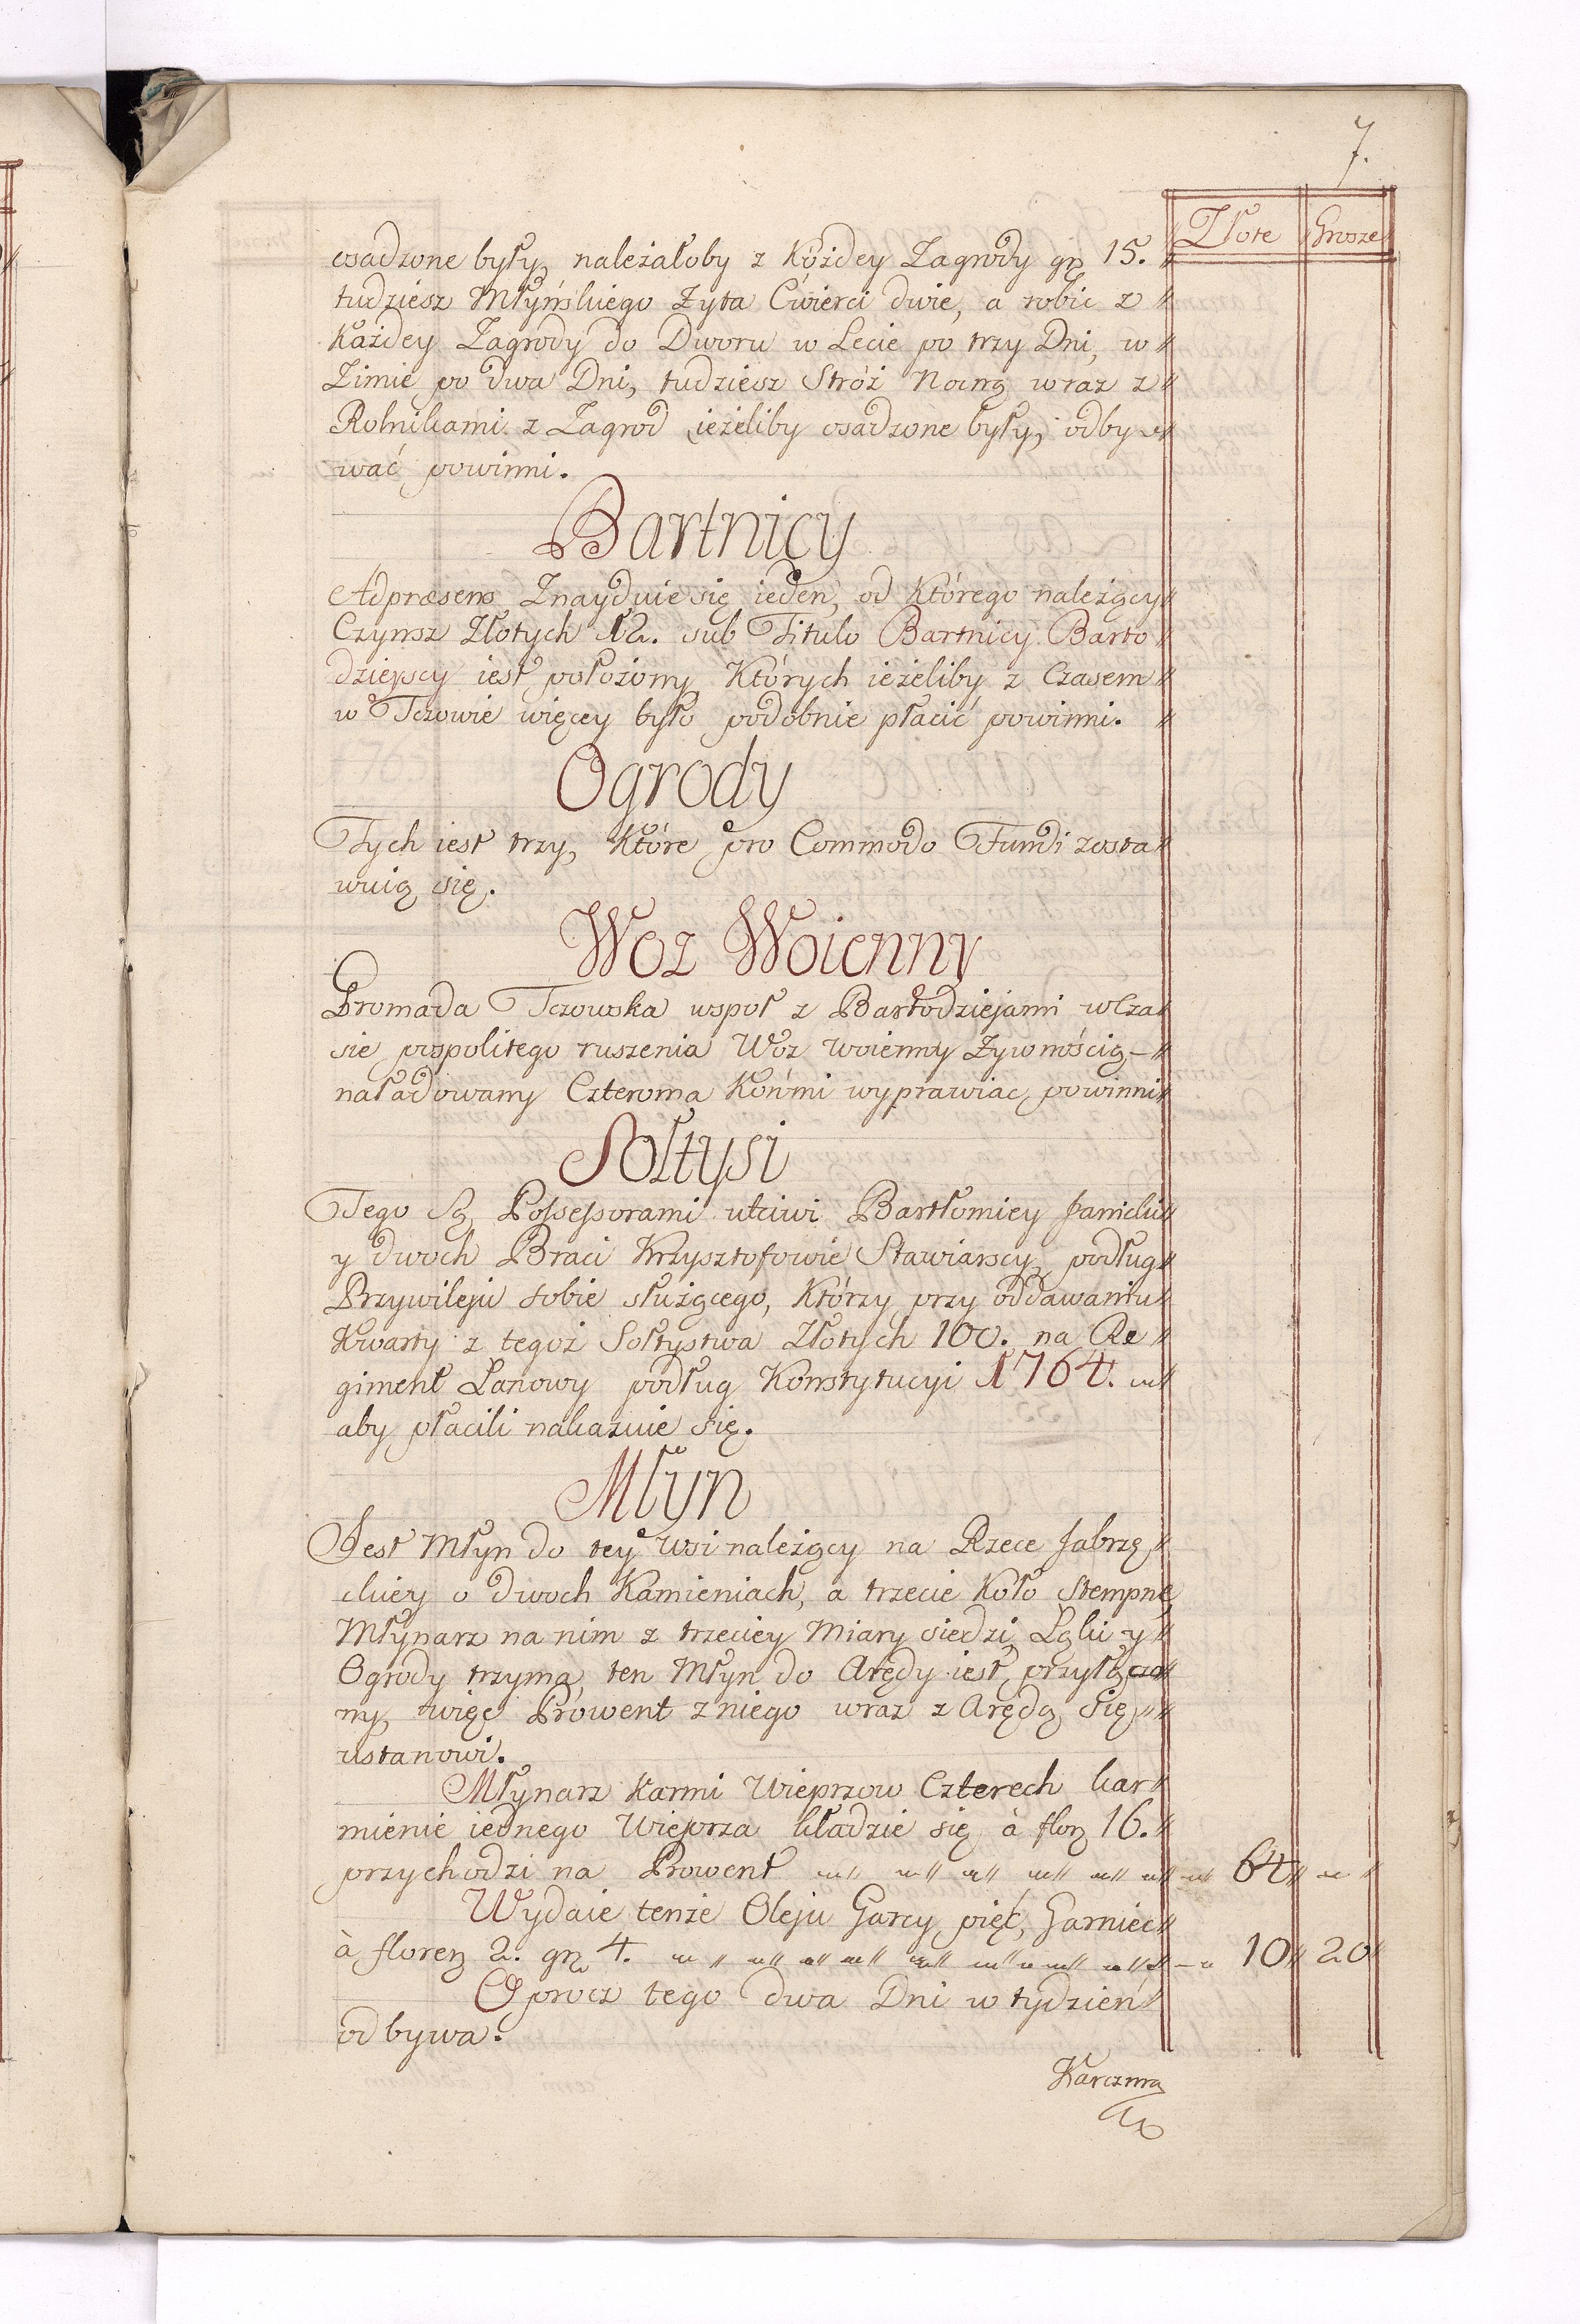 7.
Złote Grosze
osadzone były, należałoby z Kożdey Zagrody gr 15.
tudziesz Młyńskiego Zyta Cwierci dwie, a robic z
Każdey Zagrody do Dworu w Lecie po trzy Dni, w
Zimie po dwa Dni, tudziesz Stróż Nocną wraz z
Rolnikami z Zagrod ieżeliby osadzone były, odby
wać powinni.
Bartnicy
Adpræsens Znayduie się ieden, od Którego należący
Czynsz Złotych 12. sub Titulo Bartnicy Barto
dziejscy iest położony Których ieżeliby z Czasem
w Tczowie więcey było podobnie płacić powinni.
Ogrody
Tych iest trzy, Które pro Commodo Fundi zosta
wuią się.
Woz Woienny
Gromada Tczowska wspoł z Bartodziejami w Cza
sie pospolitego ruszenia Woz woienny Zywnością
naładowany Czteroma Końmi wyprawiac powinni
Sołtysi
Tego Są Possessorami utciwi Bartłomiey Janicki
y dwoch Braci Krzysztofowie Stawiarscy, podług
Przywileju sobie służącego, Którzy przy oddawaniu
Kwarty z tegoż Sołtystwa Złotych 100. na Re
giment Łanowy podług Konstytucyi 1764.
aby płacili nakazuie się.
Młyn
Jest Młyn do tey wsi należący na Rzece Jabrzę
ckiey o dwoch Kamieniach, a trzecie Koło Stempne
Młynarz na nim z trzeciey Miary siedzi Łąki y
Ogrody trzyma, ten Młyn do Arędy iest przyłączo
ny, więc Prowent z niego wraz z Arędą Się
ustanowi.
Młynarz Karmi Wieprzow Czterech kar
mienie iednego Wieprza kładzie się à flor 16.
przychodzi na Prowent 64
Wydaie tenże Oleju Garcy pięć, Garniec
à floren 2. gr 4. 10 20
Oprocz tego dwa Dni w tydzień
odbywa.
Karczma